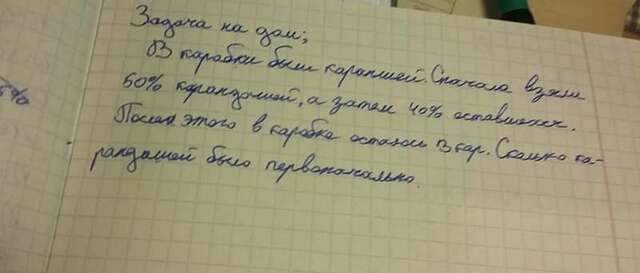 Задача на дом;
В коробки были карапшей. Сначала взяли
50% карандашей, а затем 40% оставшихся.
После этого в коробке осталось 13 кар. Сколько ка-
рандашей было первоначально.